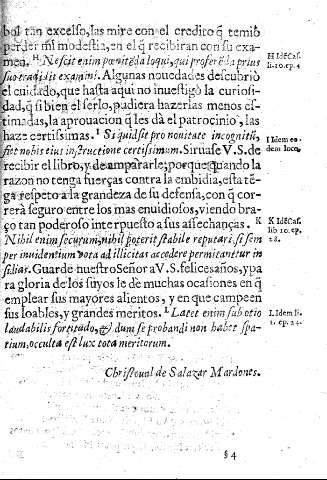 bol tan excelso, las mire con el credito q̃ temiò
perder mi modestia, en el q̃ recibiran con su exa-
men. H Nescit enim pœnitẽda loqui, qui proferẽda prius
suo tradidit examini. Algunas nouedades descubriò
el cuidado, que hasta aqui no inuestigò la curiosi-
dad, q̃ si bien el serlo, pudiera hazerlas menos es-
timadas, la aprouacion q̃ les dà el patrocinio, las
haze certissimas. I Si quid sit pro nouitate incognitũ,
fiet nobis eius instructione certissimum. Siruase V.S. de
recibir el libro, y de ampararle; porque quando la
razon no tenga fuerças contra la embidia, esta tẽ-
ga respeto a la grandeza de su defensa, con q̃ cor-
rerà seguro entre los mas enuidiosos, viendo bra-
ço tan poderoso interpuesto a sus assechanças. K
Nihil enim securum, nihil poterit stabile reputari, si sem
per inuidentium vota ad illicitas accedere permitantur in
sidias. Guarde nuestro Señor a V.S. felices años, y pa
ra gloria de los suyos le dè muchas ocasiones en q̃
emplear sus mayores alientos, y en que campeen
sus loables, y grandes meritos. L Latet enim sub otio
laudabilis fortitudo, & dum se probandi non habet spa-
tium, occulta est lux tota meritorum.
Christoual de Salazar Mardones.
§ 4
H Idẽ Cas.
li. 10. ep. 4
I Idem eo-
dem loco.
K Idẽ Cas.
lib 10. ep.
28.
L Idem li.
1. ep. 24.